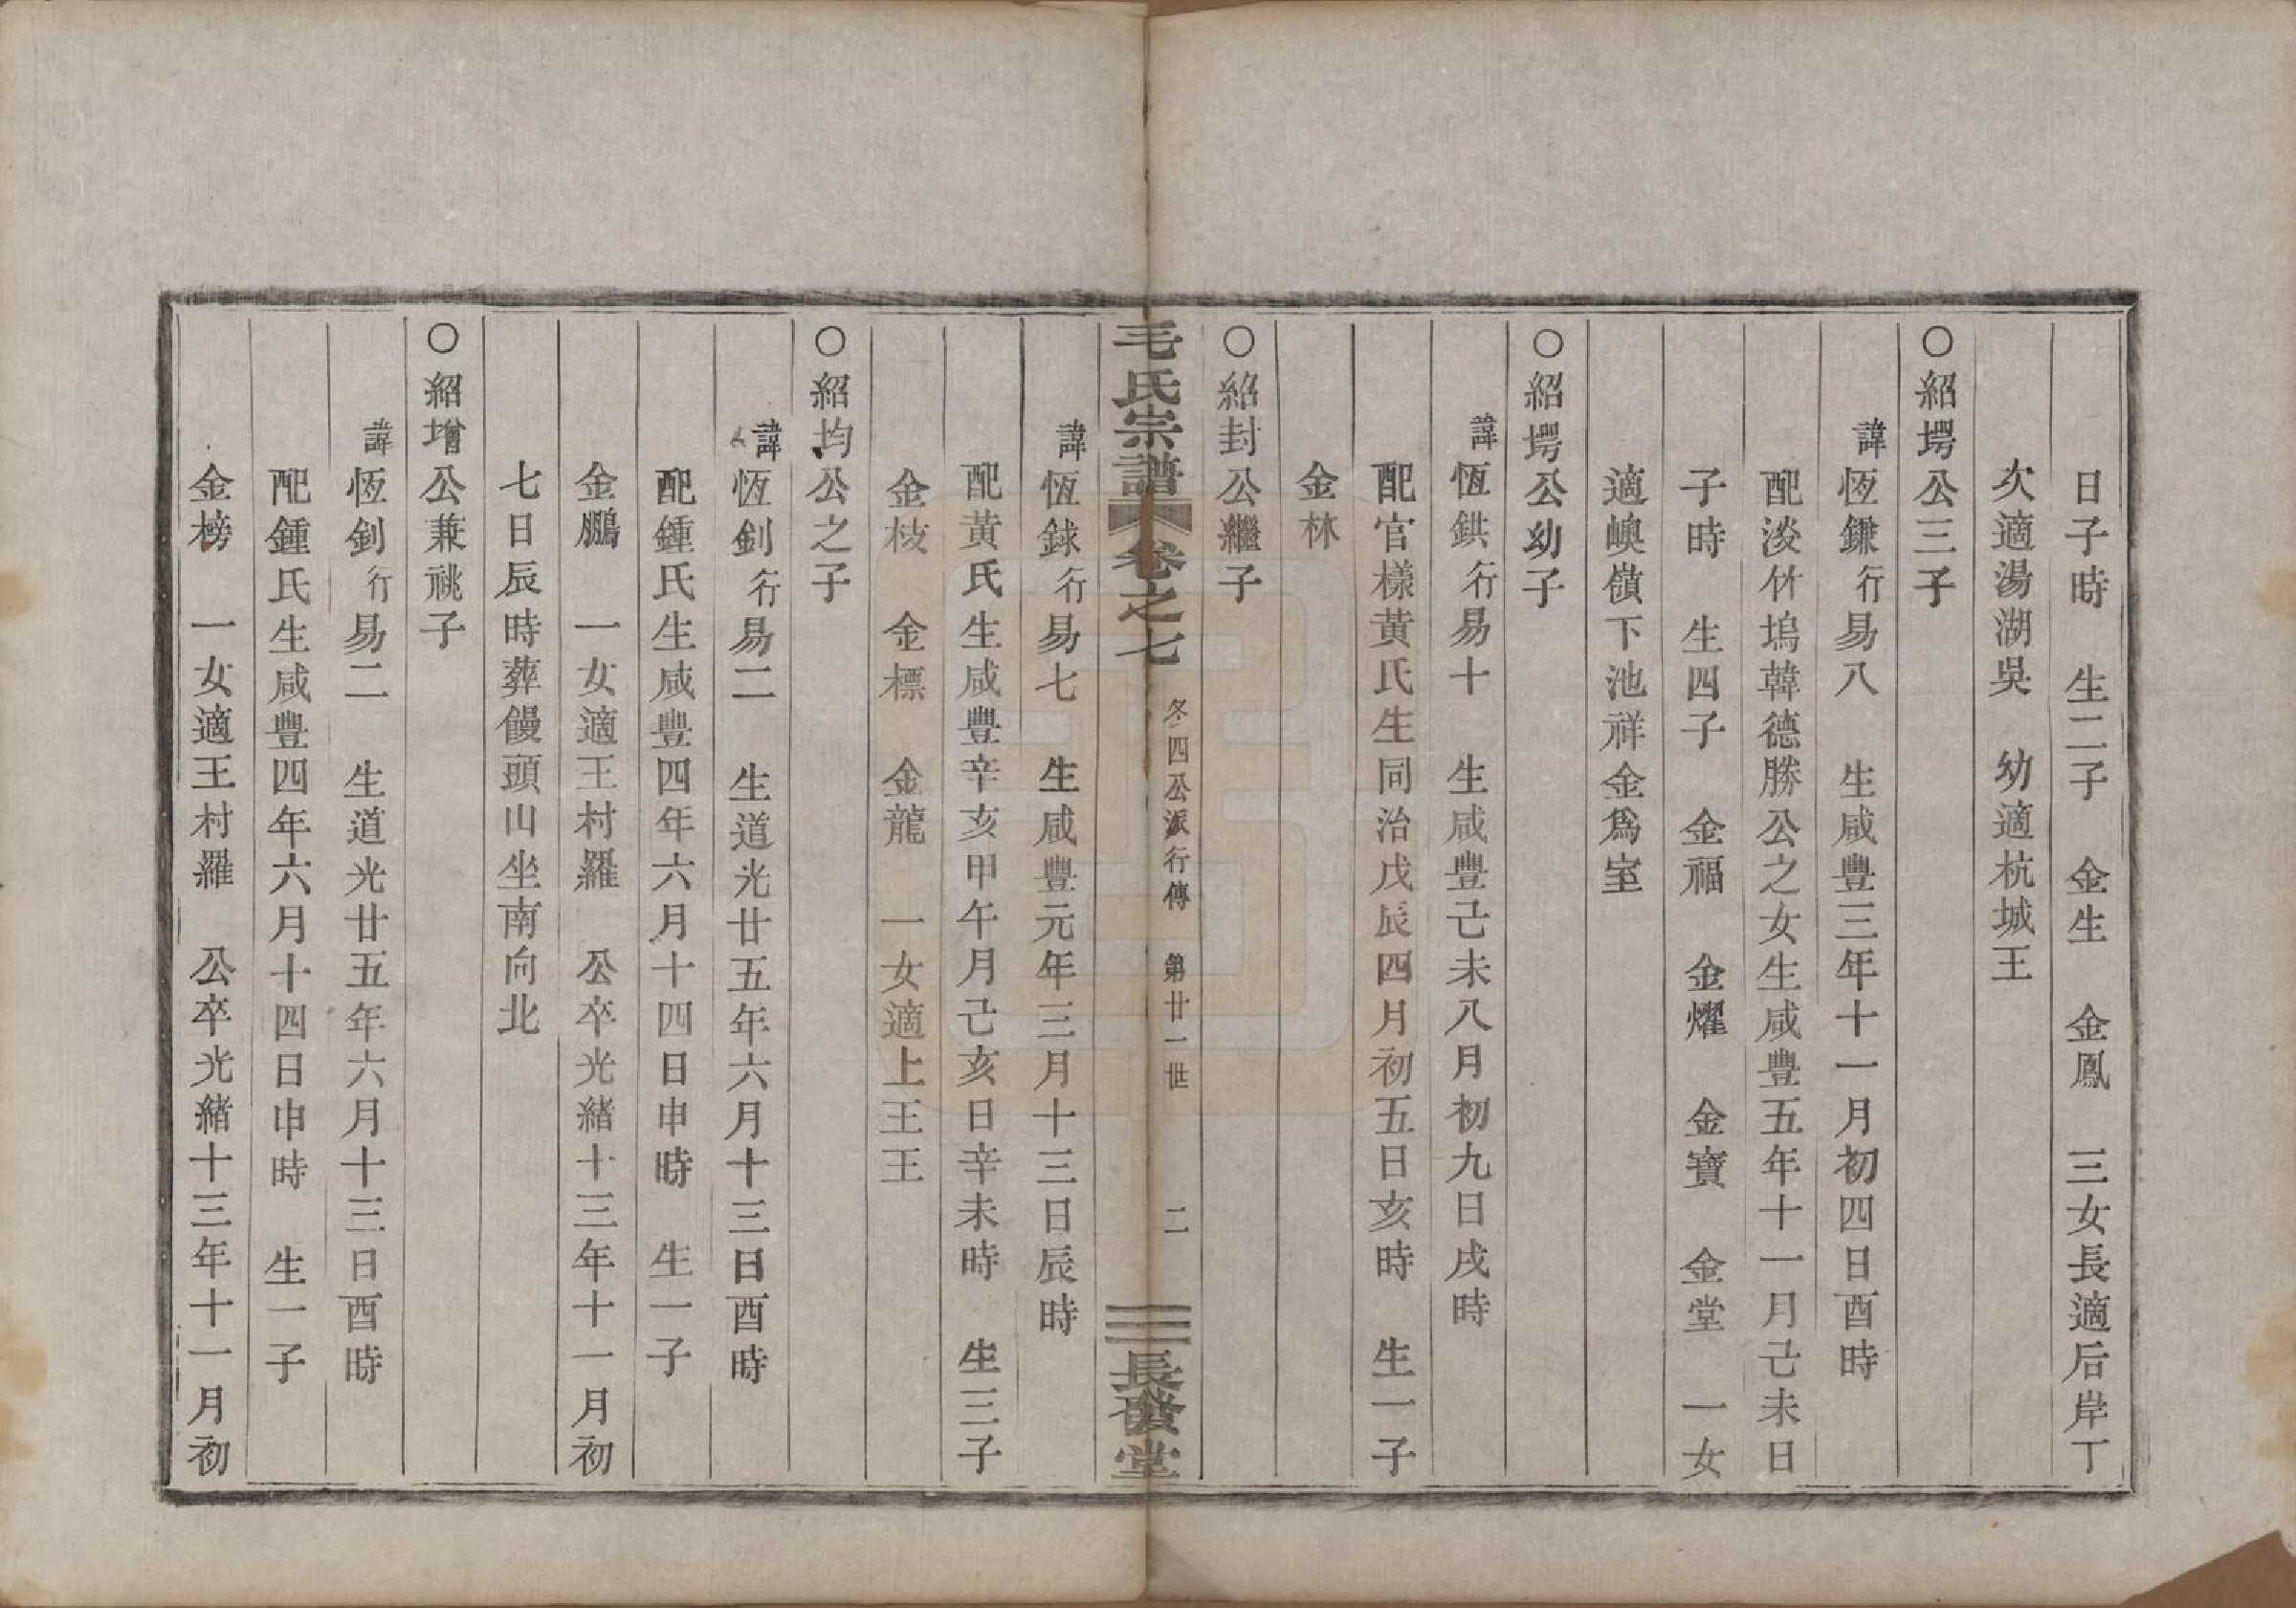 日子時　生二子　金生　金鳳　三女長適后岸丁
次適湯湖吳　幼適杭城王
○紹塄公三子
諱恆鎌行易八　生咸豐三年十一月初四日酉時
配淡竹塢韓德勝公之女生咸豐五年十一月己未日
子時　生四子　金福　金燿　金寶　金堂　一女
適嶼嶺下池祥金爲室
○紹塄公幼子
諱恆鉷行易十　生咸豐己未八月初九日戌時
配官樣黃氏生同治戊辰四月初五日亥時　生一子
金林
○紹封公繼子
毛氏宗譜　卷之七　冬四公派行傳　第廿一世　二　長發堂
諱恆銶行易七　生咸豐元年三月十三日辰時
配黃氏生咸豐辛亥甲午月己亥日辛未時　生三子
金枝　金標　金龍　一女適上王王
○紹均公之子
諱恆釗行易二　生道光廿五年六月十三日酉時
配鍾氏生咸豐四年六月十四日申時　生一子
金鵬　一女適王村羅　公卒光緒十三年十一月初
七日辰時葬饅頭山坐南向北
○紹增公兼祧子
諱恆釗行易二　生道光廿五年六月十三日酉時
配鍾氏生咸豐四年六月十四日申時　生一子
金榜　一女適王村羅　公卒光緒十三年十一月初